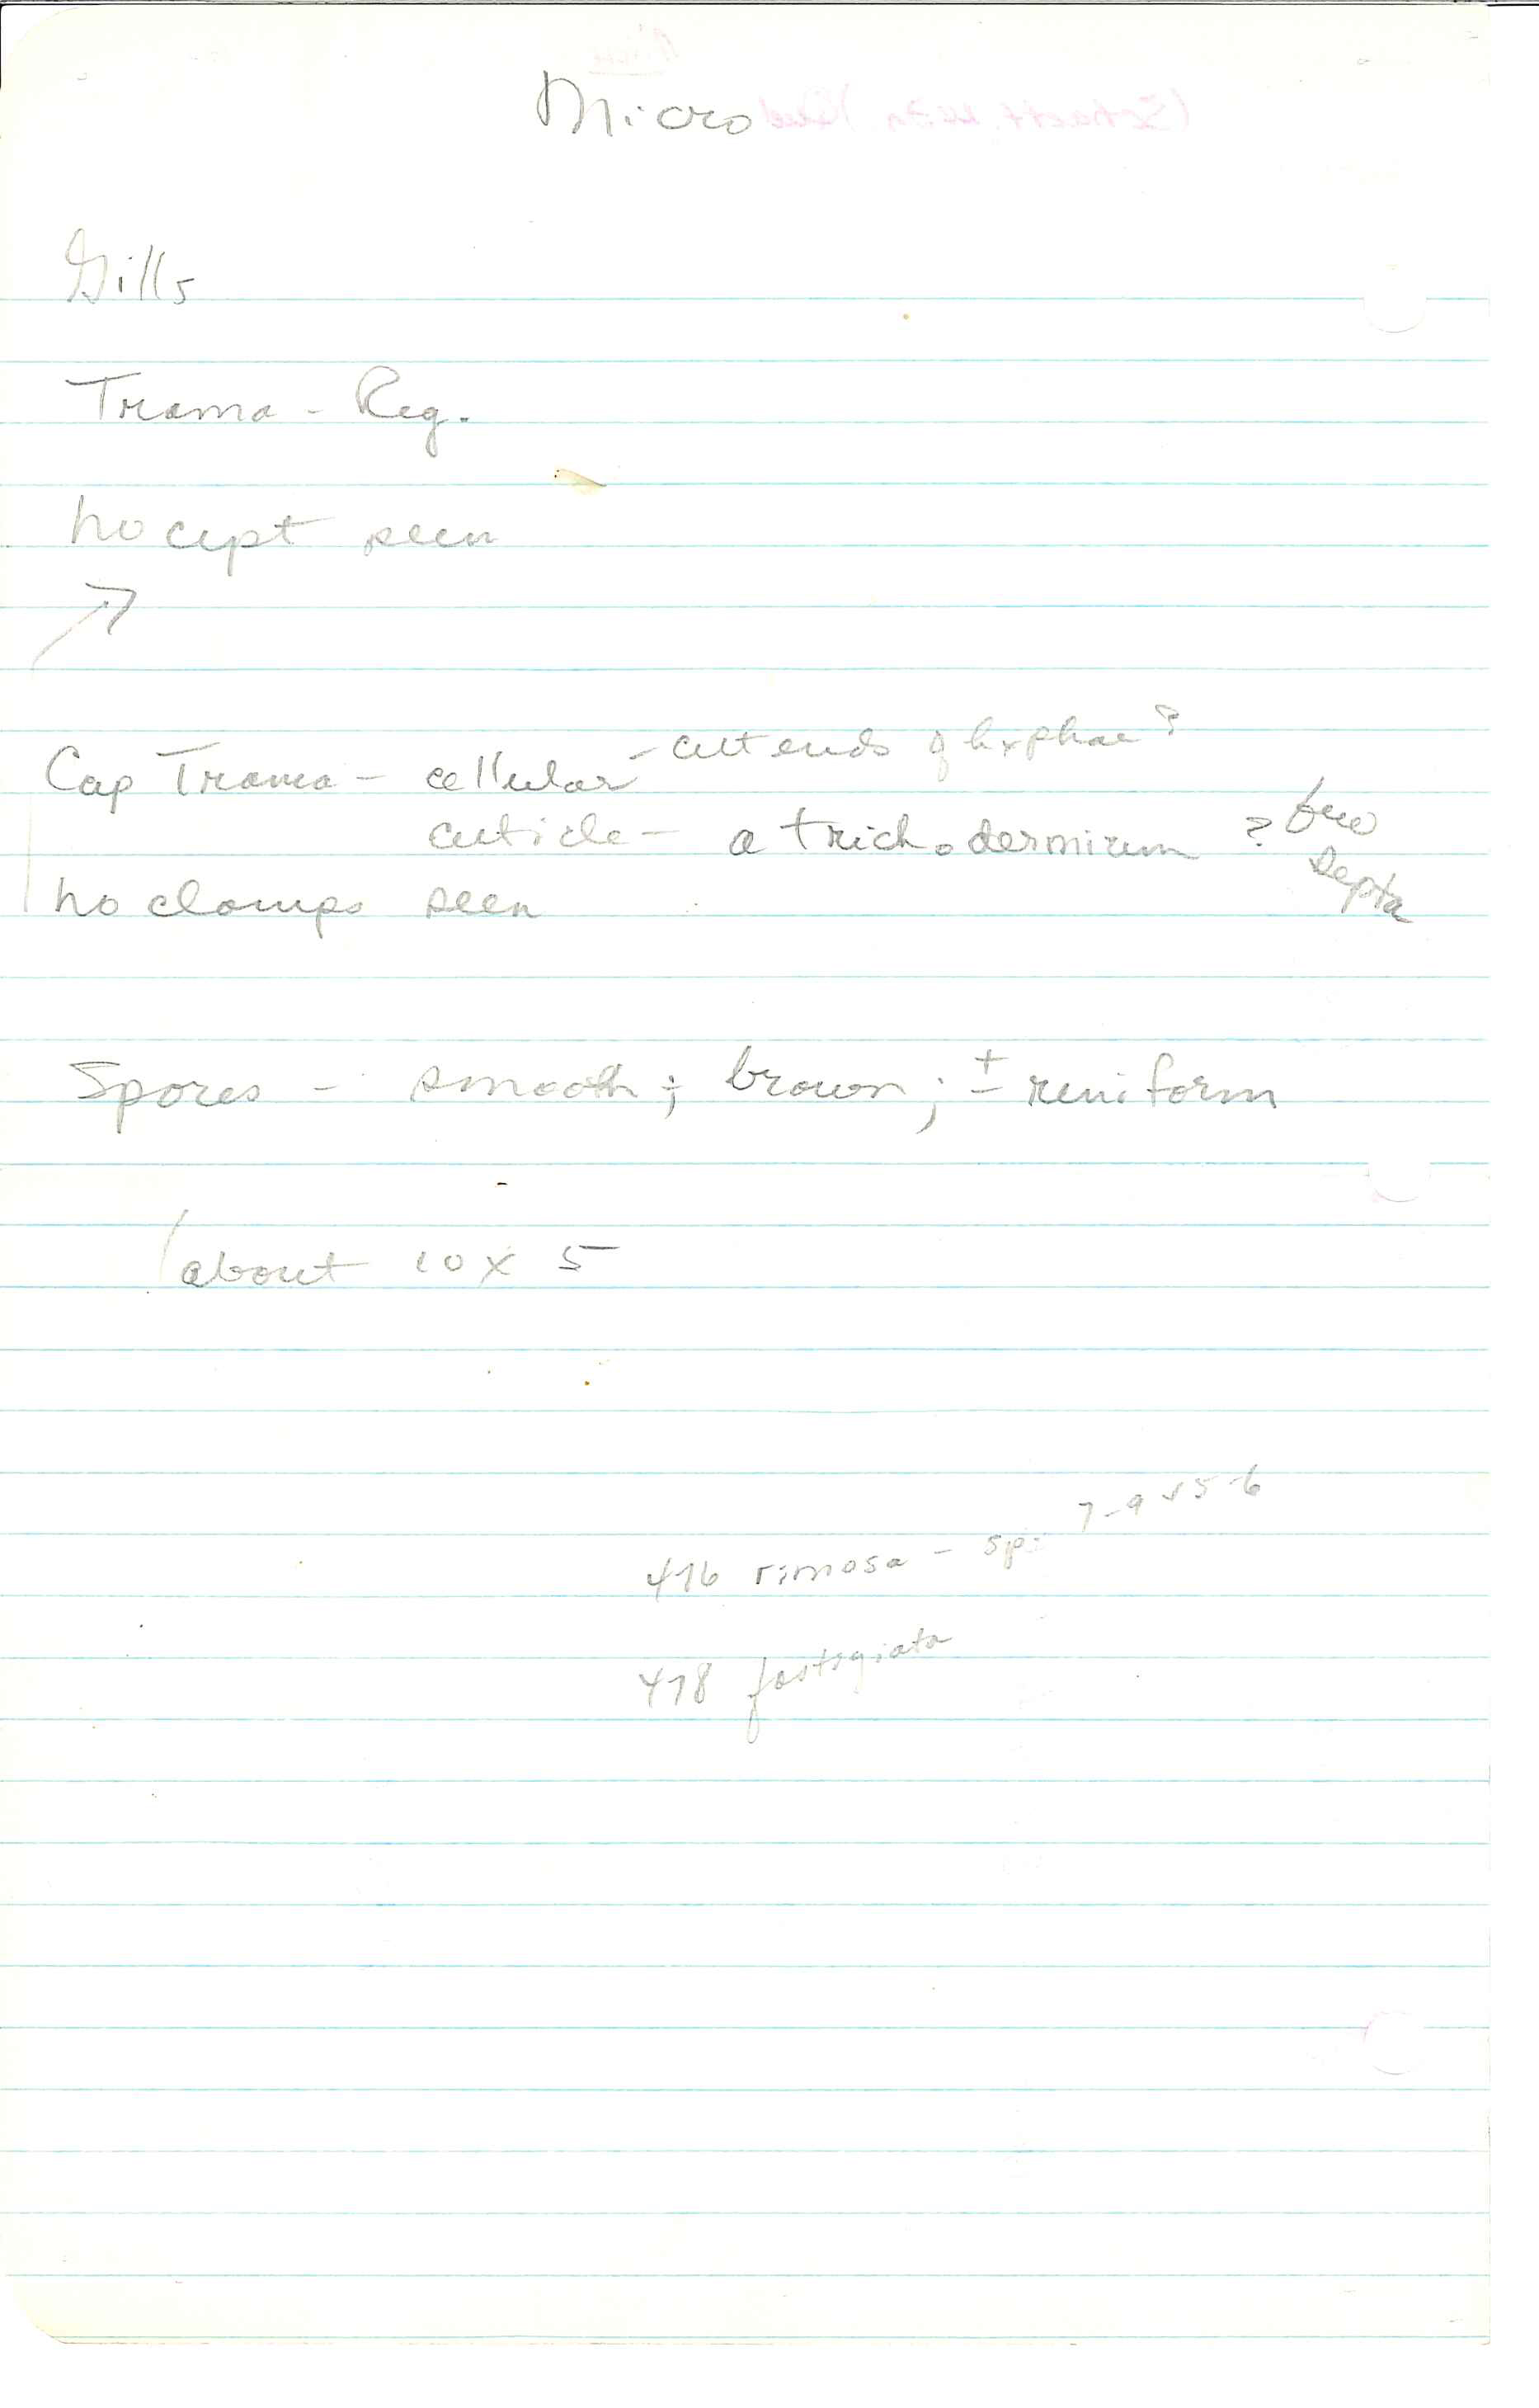 Micro
Gills
Trama - Reg.
no cyst seen
Cap Trama - cellular - cut ends of hyphae?
cuticle - a trichodermium ? few septa
no clamps seen
Spores - smooth; brown; ± reniform
(about 10 x 5
416 rimosa - sp. 7-9 x 5-6
418 fastigiata